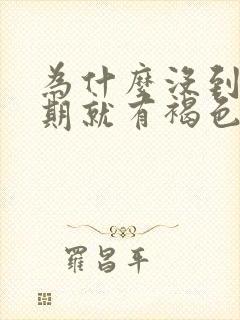 為什麼沒到
期就有褐色
羅昌平